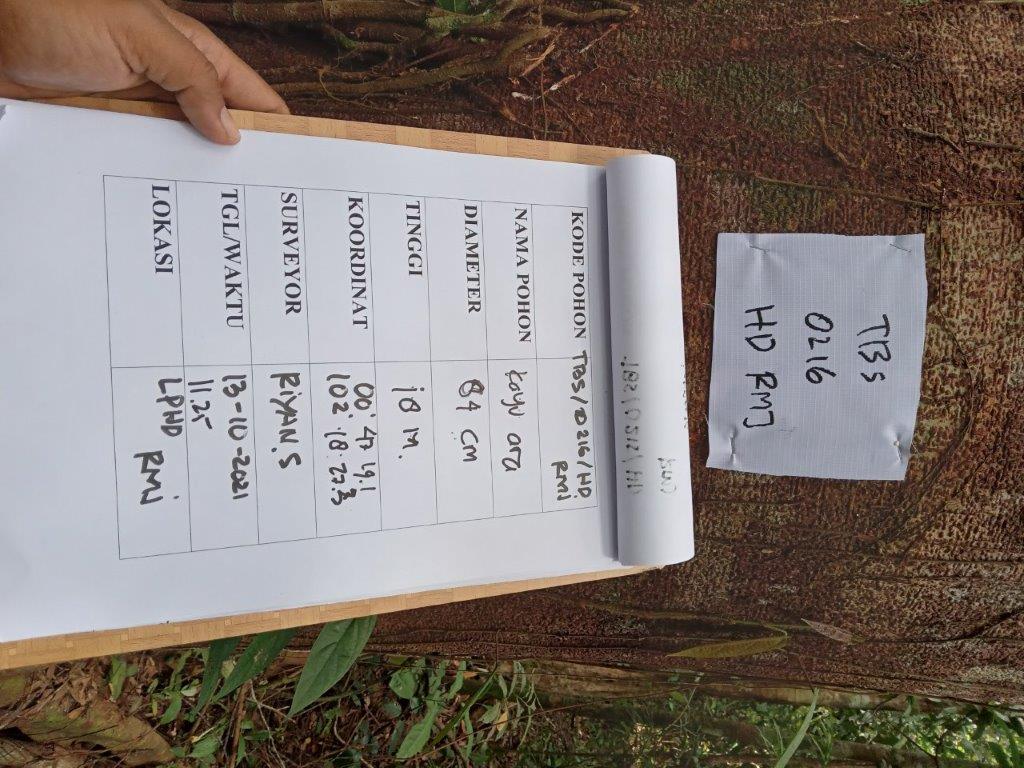 TBS
0216
HD RMJ
KODE POHON TBS/0216/HD RMJ
NAMA POHON kayu ara
DIAMETER 84 cm
TINGGI 18 M.
KOORDINAT 00° 47 19.1
102° 18. 27.3
SURVEYOR RiYAN.S
TGL/WAKTU 13-10-2021
11.25
LOKASI LPHD RMj